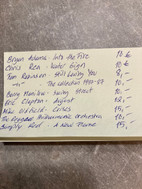 Bryan Adams - Into the Fire 10 €
Chris Rea - Water Sign 10 €
Tom Robinson - Still Loving You 8,-
The Collection 1977-87 10,-
Barry Manilow - Swing Street 10,-
Eric Clapton - August 12,-
Mike Oldfield - Crises 15,-
The London Philharmonic Orchestra 10,-
Simply Red - A New Flame 15,-